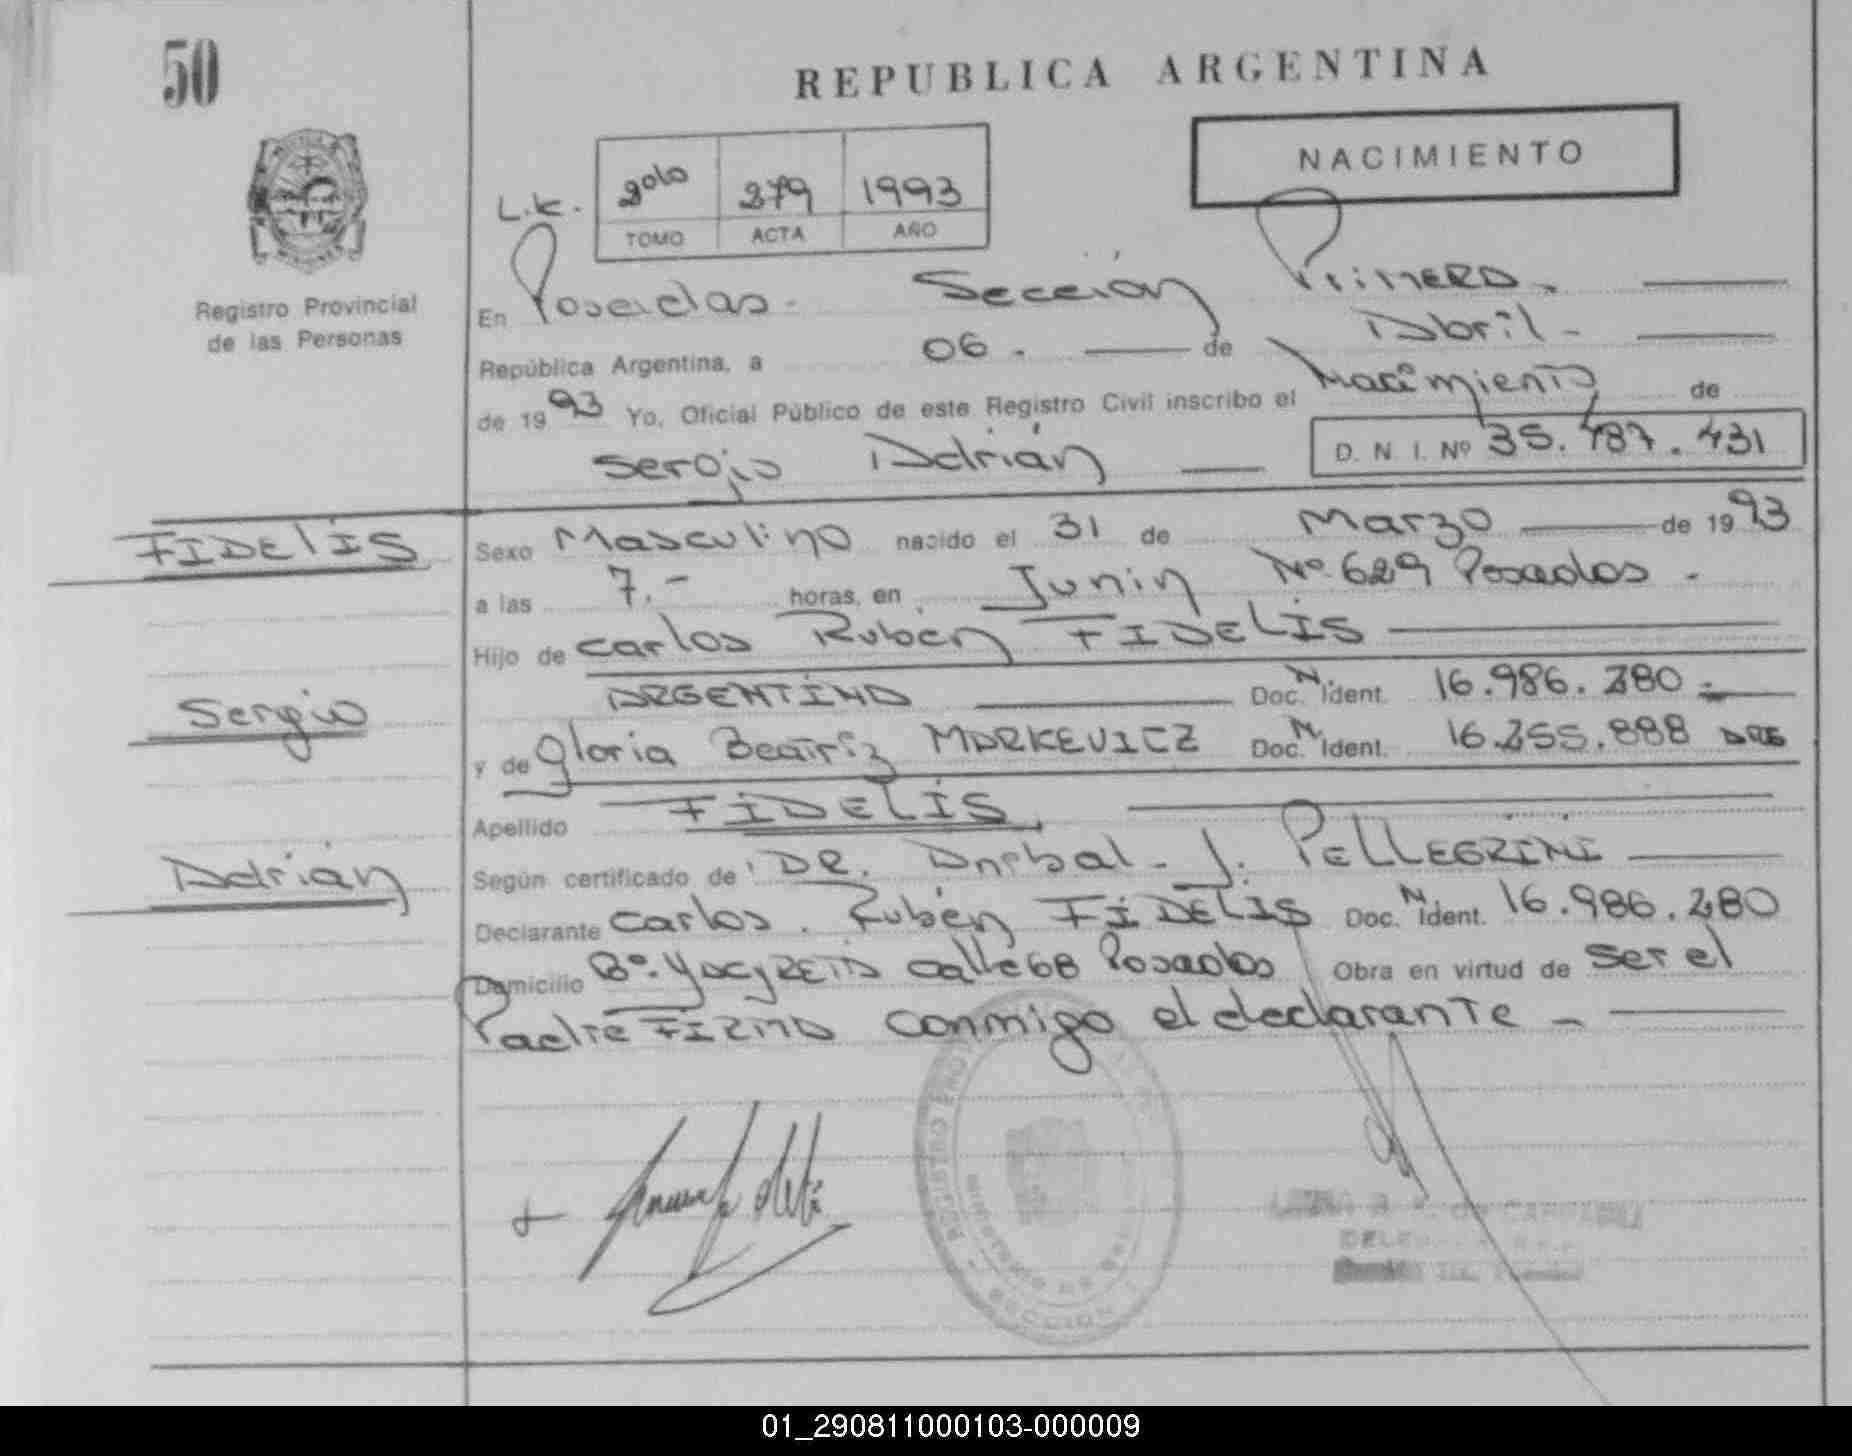 50
REPUBLICA ARGENTINA
NACIMIENTO
L.K. 2º 279 1993
TOMO ACTA AÑO
Registro Provincial
de las Personas
En Posadas - Sección Primera.
República Argentina, a 06. de Abril -
de 1993 Yo, Oficial Público de este Registro Civil inscribo el Nacimiento de
Sergio Adrián
D. N. I. Nº 35.487.431
FIDELIS
Sexo Masculino nacido el 31 de Marzo de 1993
a las 7.- horas, en Junin Nº 629 Posadas -
Hijo de Carlos Rubén FIDELIS
Sergio
ARGENTINO Doc. N. Ident. 16.986.280 -
y de Gloria Beatriz MARKEVICZ Doc. N. Ident. 16.255.888 ARG
Apellido FIDELIS
Adrián
Según certificado de DR. Anibal - J. PELLEGRINI
Declarante Carlos. Rubén FIDELIS Doc. N Ident. 16.986.280
Domicilio Bº. YACYRETA calle 68 Posadas Obra en virtud de ser el
Padre FIRMA conmigo el declarante -
REGISTRO
SECCION
DE
01_290811000103-000009